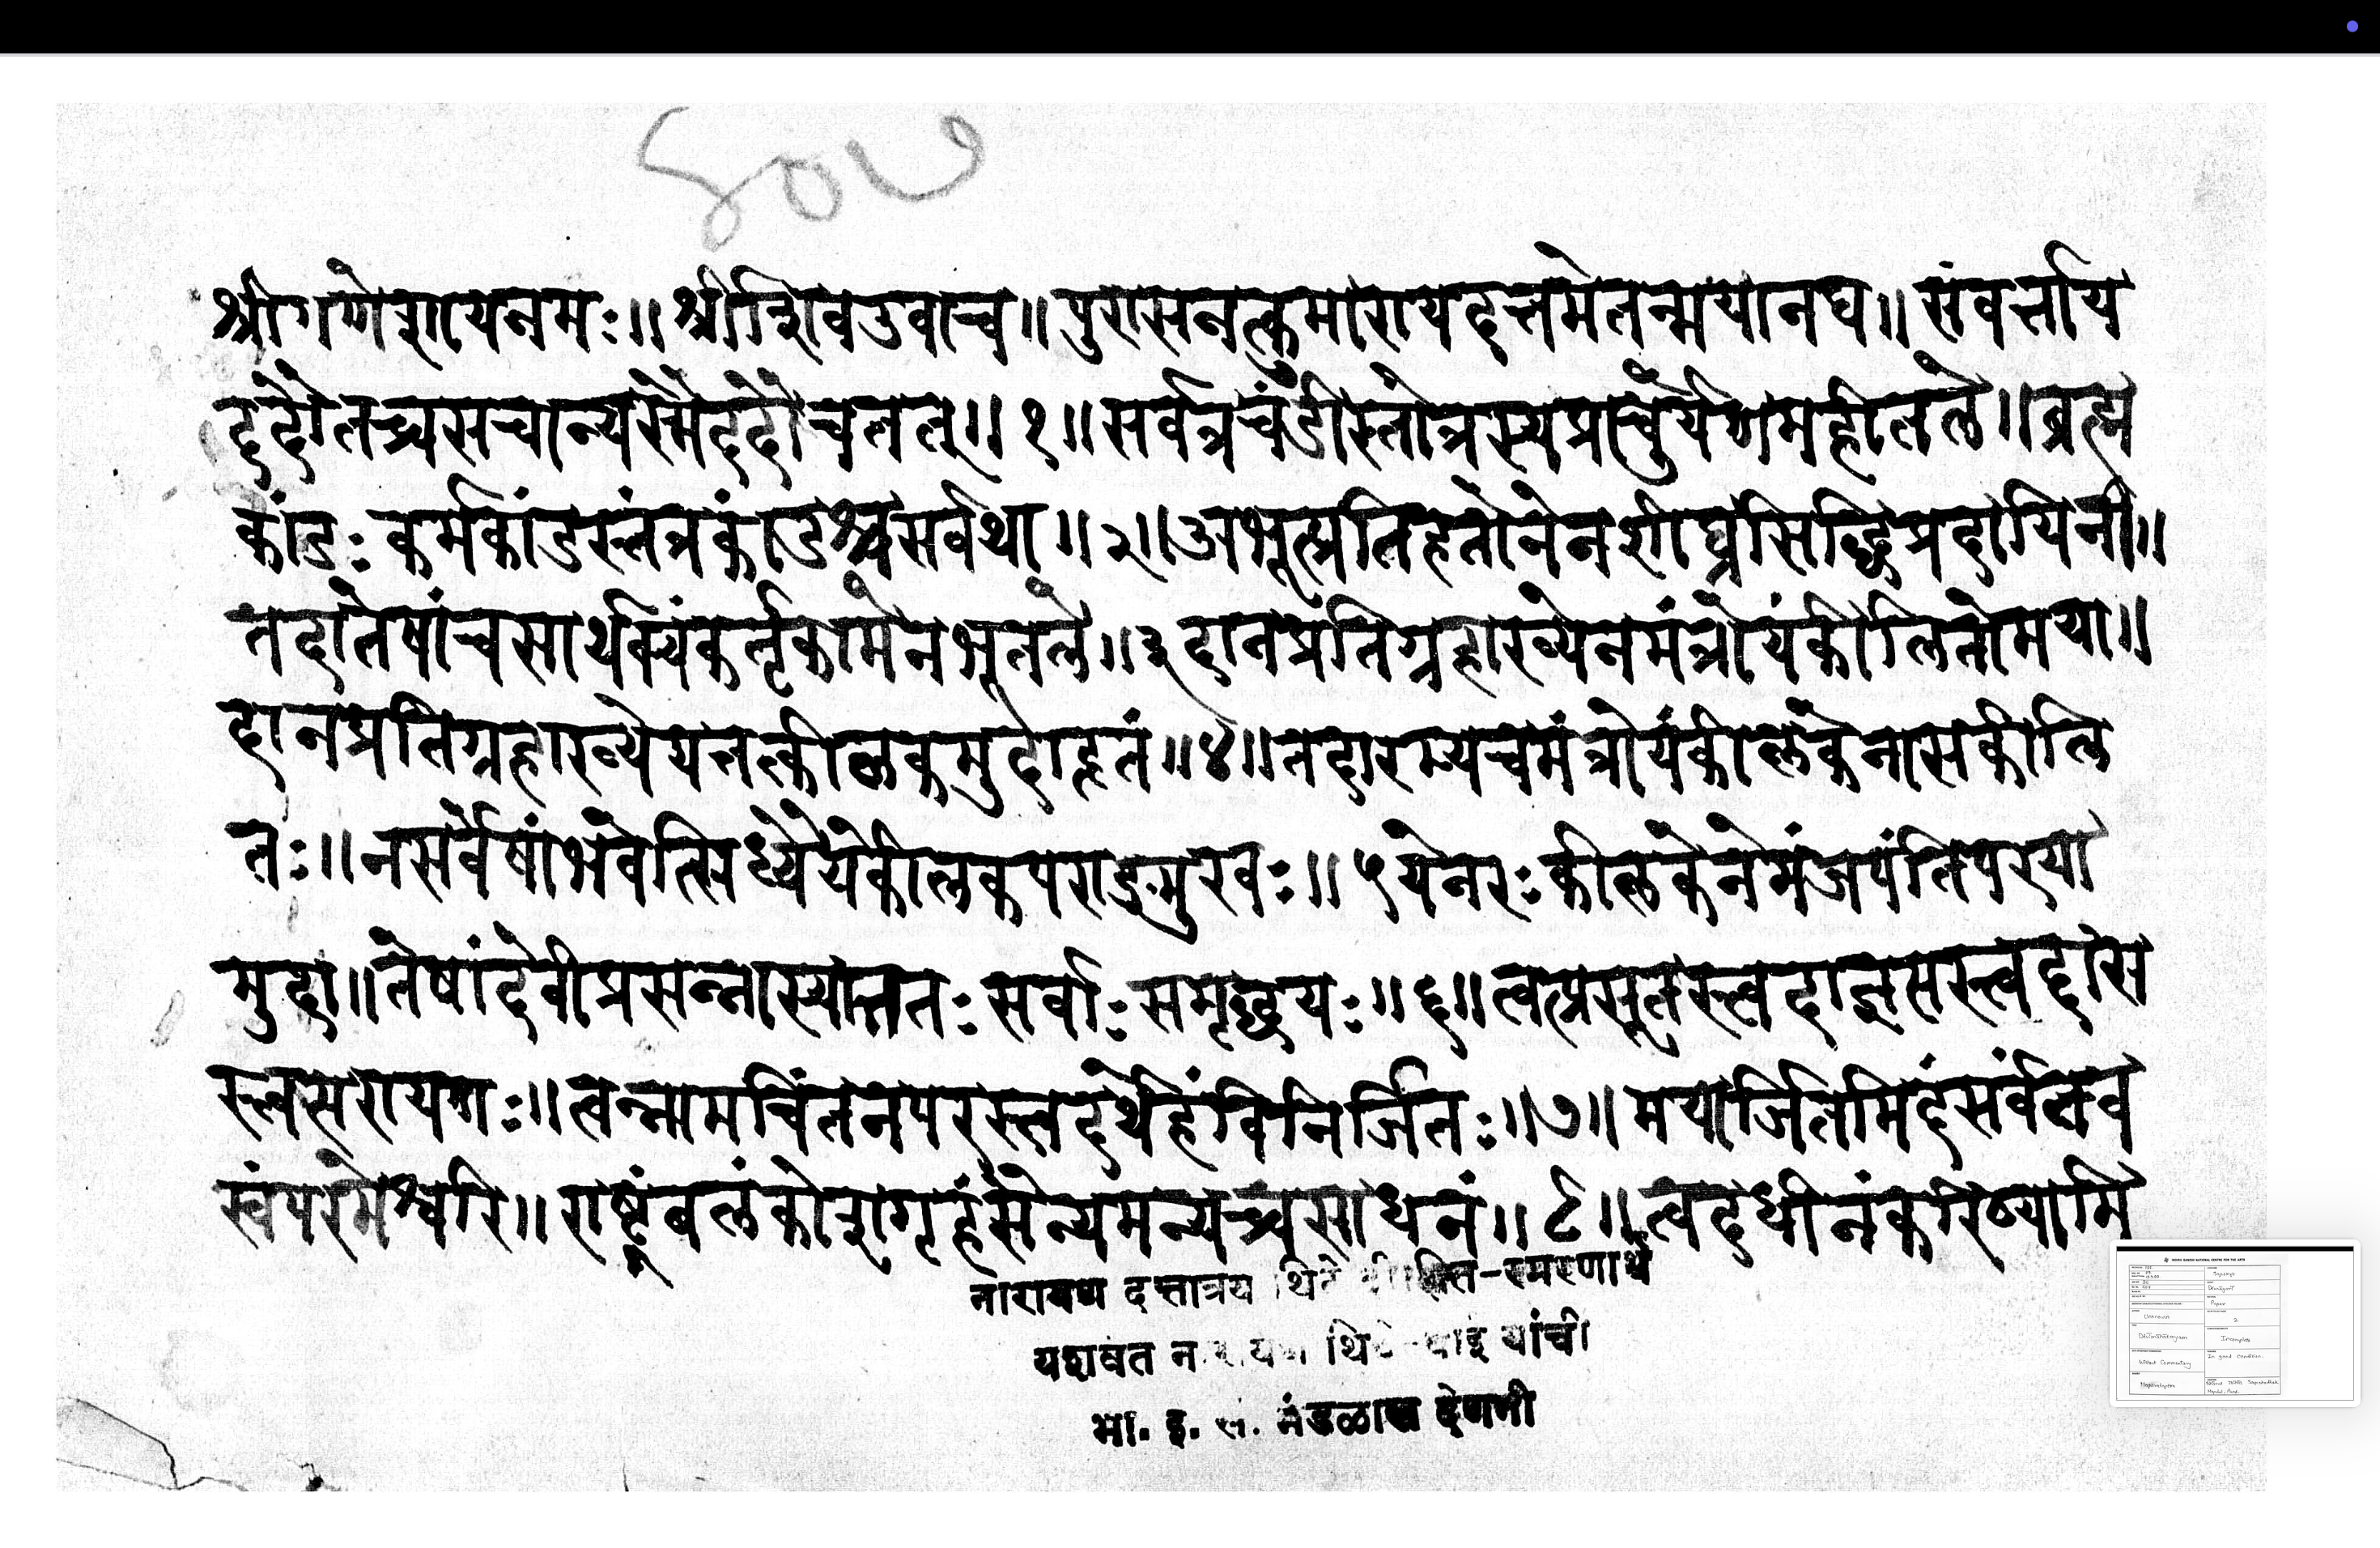 ४०७
श्रीगणेशायनमः॥श्रीशिवउवाच॥पुरासनत्कुमारायदत्तमेतन्मयानघ॥संवर्त्ताय
ददौतच्चसचान्यस्मैददौचतत्॥१॥सर्वत्रचंडीस्तोत्रस्यप्राचुर्येणमहीतले॥ब्रह्म
कांडःकर्मकांडस्तंत्रकांडश्चसर्वथा॥२॥अभूत्प्रतिहतोनेनशीघ्रसिद्धिप्रदायिनी॥
तदातेषांचसार्थक्यंकर्तृकामेनभूतले॥३दानप्रतिग्रहाख्येनमंत्रोयंकीलितोमया॥
दानप्रतिग्रहाख्येयतत्कीलकमुदाहृतं॥४॥तदारम्यचमंत्रोयंकीलकेनासकीलि
तः॥नसर्वेषांभवेत्सिध्यैयेकीलकपराङ्मुखः॥५येनरःकीलकेनेमंजपंतिपरया
मुदा॥तेषांदेवीप्रसन्नास्यात्ततःसर्वाःसमृद्धयः॥६॥त्वत्प्रसूतस्त्वदाज्ञसस्त्वद्दास
स्त्वसरायणः॥त्वन्नामचिंतनपरस्त्वदर्थेहंविनिर्जितः॥७॥मयार्जितमिदंसर्वंतव
स्वंपरमेश्वरि॥राष्ट्रंबलंकोशगृहंसैन्यमन्यच्चसाधनं॥८॥त्वदधीनंकरिष्यामि
नारायण दत्तात्रय थिटे स्मरणार्थ
यशवंत थिटे यांची
भा. इ. सं. मंडळास देणगी